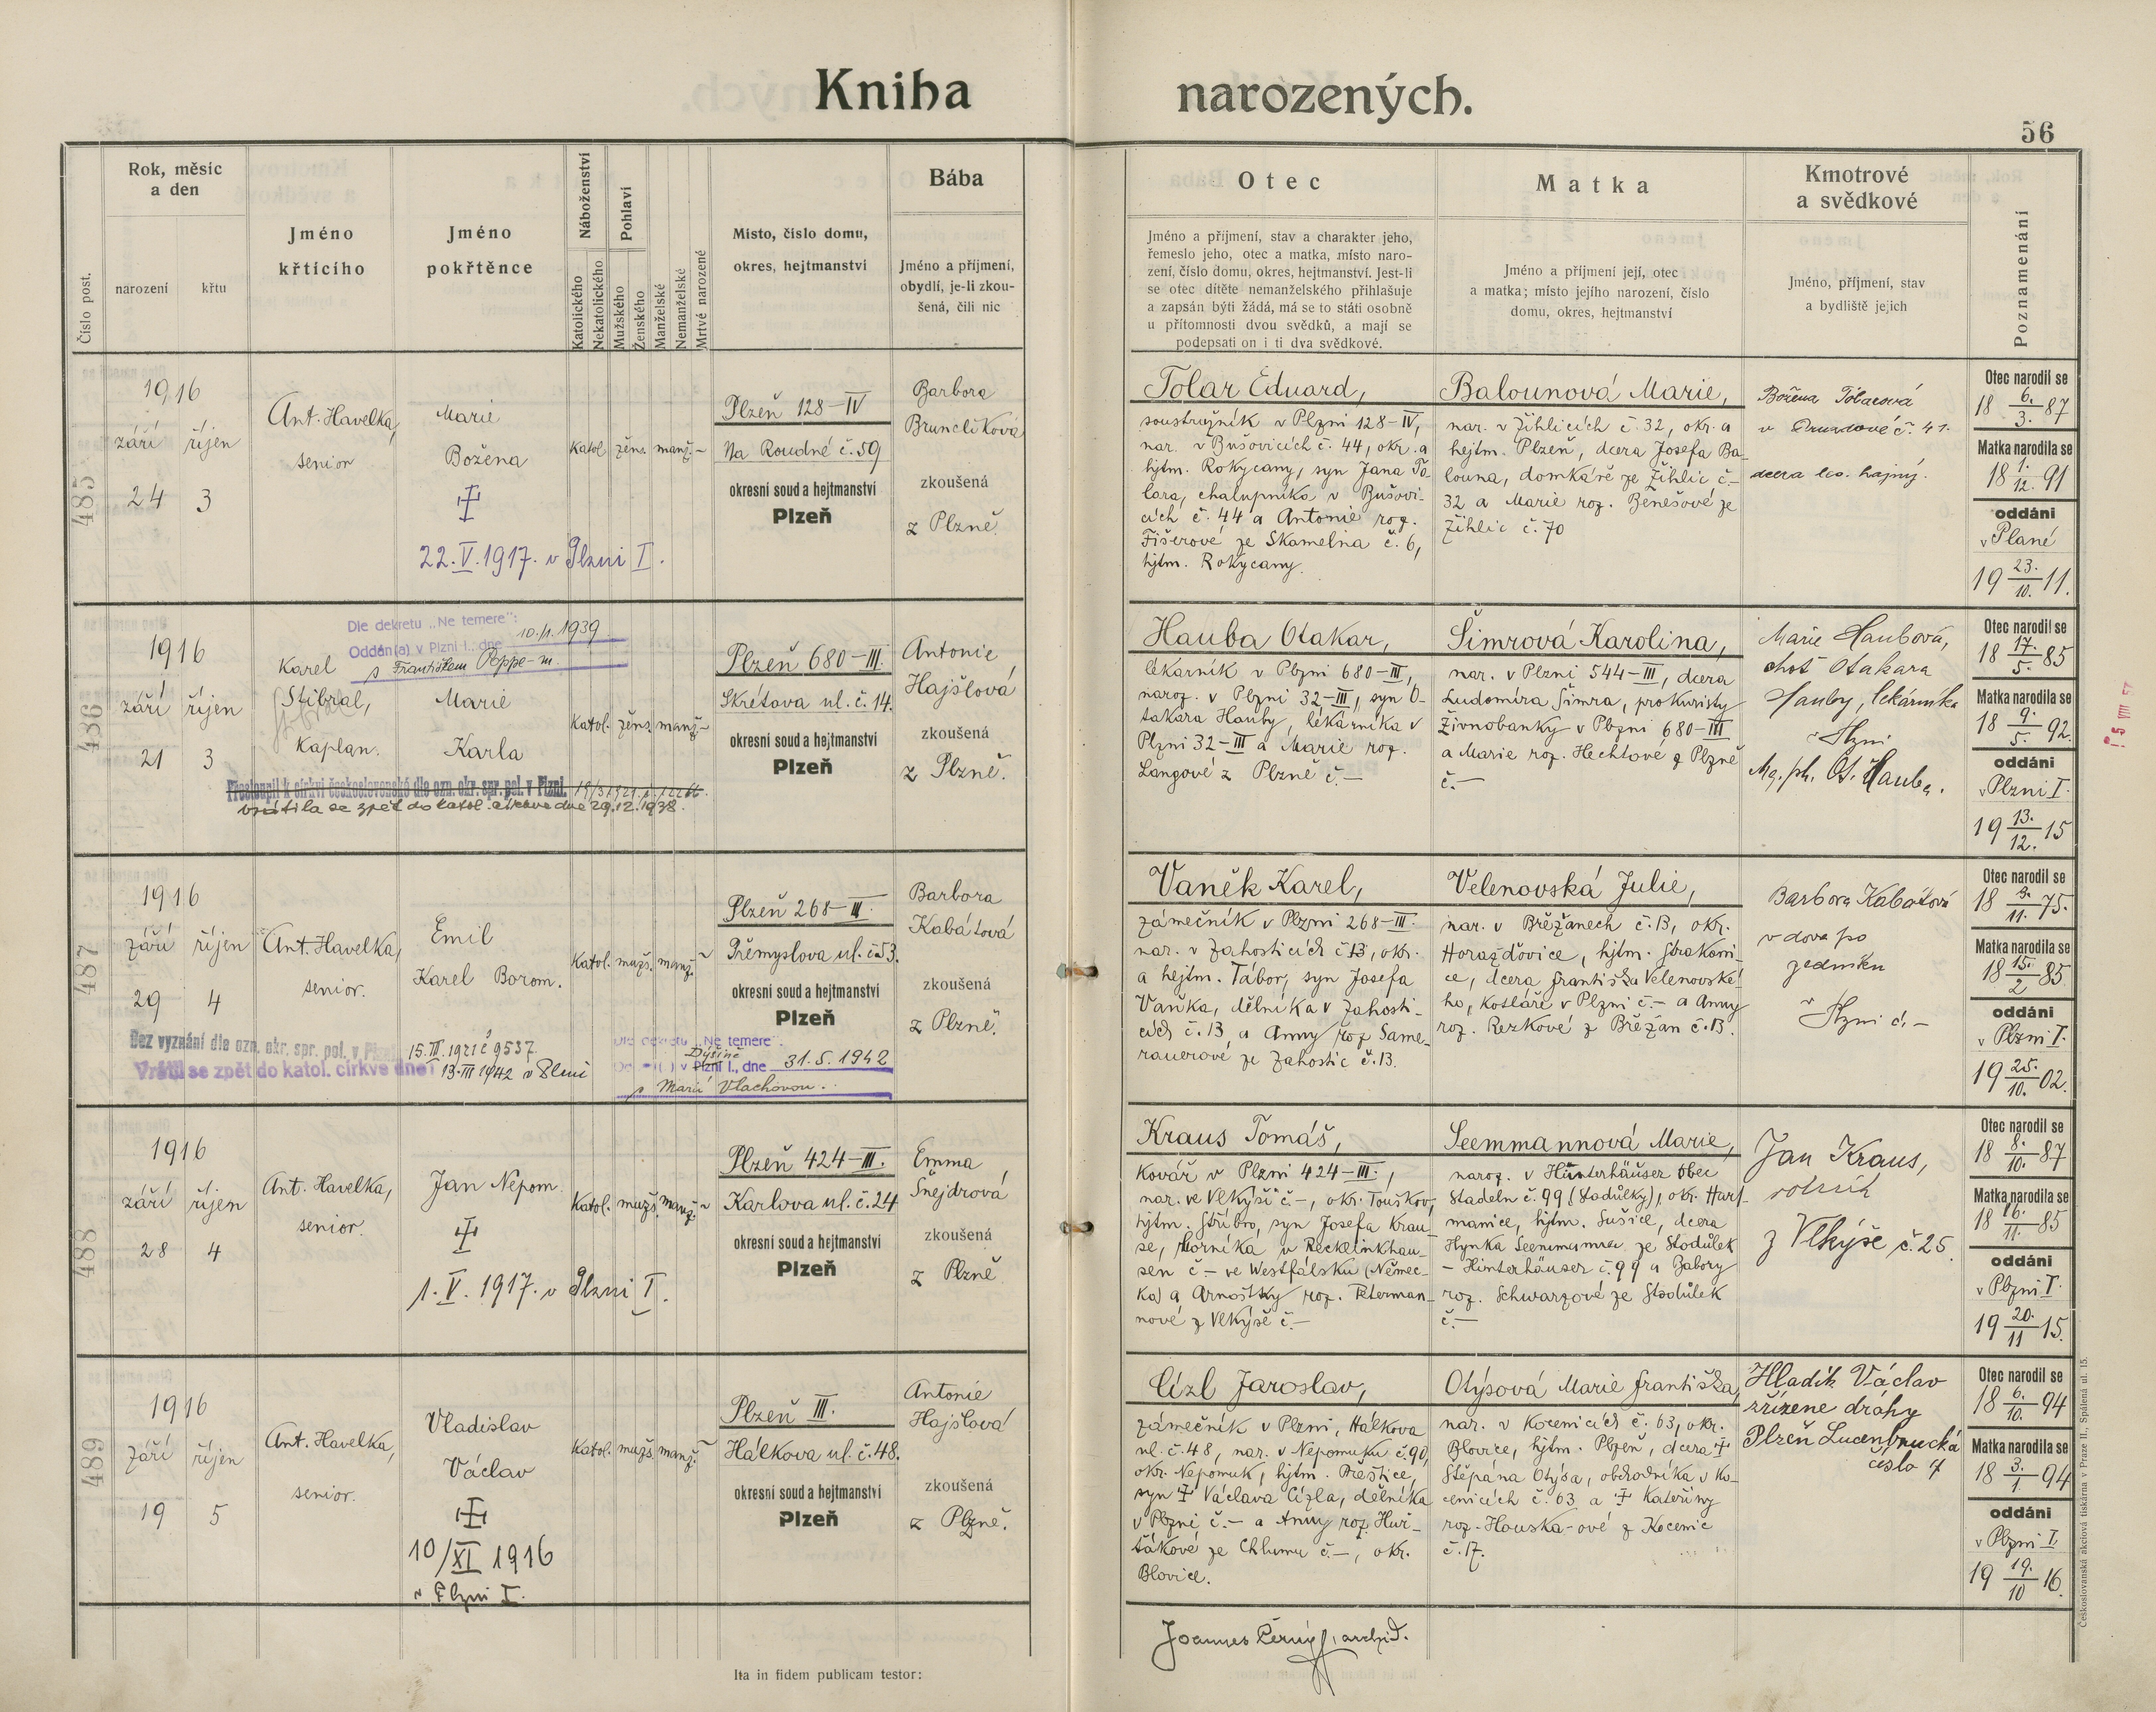 Kniha narozených.
56
Číslo post.
Rok, měsíc
a den
narození
křtu
Jméno
křtícího
Jméno
pokřtěnce
Náboženství
Katolického
Nekatolického
Pohlaví
Mužského
Ženského
Manželské
Nemanželské
Mrtvé narozené
Místo, číslo domu,
okres, hejtmanství
Bába
Jméno a příjmení,
obydlí, je-li zkou-
šená, čili nic
Otec
Jméno a příjmení, stav a charakter jeho,
řemeslo jeho, otec a matka, místo naro-
zení, číslo domu, okres, hejtmanství. Jest-li
se otec dítěte nemanželského přihlašuje
a zapsán býti žádá, má se to státi osobně
u přítomnosti dvou svědků, a mají se
podepsati on i ti dva svědkové.
Matka
Jméno a příjmení její, otec
a matka; místo jejího narození, číslo
domu, okres, hejtmanství
Kmotrové
a svědkové
Jméno, příjmení, stav
a bydliště jejich
Poznamenání
485
1916
září říjen
24 3
Ant. Havelka,
senior
Marie
Božena
22. V. 1917. v Plzni I.
Katol. žens. manž.
Plzeň 128-IV
Na Roudné č. 59
okresní soud a hejtmanství
Plzeň
Barbora
Brunclíková
zkoušená
z Plzně.
Tolar Eduard,
soustružník v Plzni 128-IV,
nar. v Bušovicích č. 44, okr. a
hjtm. Rokycany, syn Jana To-
lara, chalupníka v Bušovi-
cích č. 44 a Antonie roz.
Fišerové ze Skamelna č. 6,
hjtm. Rokycany.
Balounová Marie,
nar. v Žihlicích č. 32, okr. a
hejtm. Plzeň, dcera Josefa Ba-
louna, domkáře ze Žihlic č-
32 a Marie roz. Benešové ze
Žihlic č. 70
Božena Tolarová
dcera les. hajný.
Otec narodil se
18 6./3. 87
Matka narodila se
18 1./12. 91
oddáni
v Plané
19 23./10. 11.
486
1916
září říjen
21 3
Karel
Stibral,
Kaplan.
Dle dekretu „Ne temere":
Oddán(a) v Plzni I., dne 10./1. 1939
s Františkem Poppe-m.
Marie
Karla
Přestoupil k církvi československé dle ozn. okr. spr. pol. v Plzni.
vrátila se zpět do katol. církve dne 29.12.1938.
Katol. žens. manž.
Plzeň 680-III.
Skrétova ul. č. 14.
okresní soud a hejtmanství
Plzeň
Antonie
Hajšlová
zkoušená
z Plzně.
Hauba Otakar,
lékárník v Plzni 680-III,
naroz. v Plzni 32-III, syn O-
takara Hauby, lékárníka v
Plzni 32-III a Marie roz.
Langové z Plzně č.-
Šimrová Karolina,
nar. v Plzni 544-III, dcera
Ludomíra Šimra, prokuristy
Živnobanky v Plzni 680-III
a Marie roz. Hechtové z Plzně
č.-
Marie Haubová,
choť Otakara
Hauby, lékárníka
v Plzni
Mg. ph. Ot. Hauba.
Otec narodil se
18 17./5. 85
Matka narodila se
18 9./5. 92.
oddáni
v Plzni I.
19 13./12. 15
487
1916
září říjen
29 4
Ant. Havelka,
senior.
Emil
Karel Borom.
Bez vyznání dle ozn. okr. spr. pol. v Plzni 15. III. 1921 č 9537
Vrátil se zpět do katol. církve dne 13. III 1942 v Plzni
Katol. mužs. manž.
Plzeň 268-III.
Přemyslova ul. č. 53.
okresní soud a hejtmanství
Plzeň
Dle dekretu „Ne temere".
Dýšině
v Plzni I., dne 31. 5. 1942
s Marií Vlachovou.
Barbora
Kabátová
zkoušená
z Plzně.
Vaněk Karel,
zámečník v Plzni 268-III.
nar. v Zahosticích č. 13, okr.
a hejtm. Tábor, syn Josefa
Vaňka, dělníka v Zahosti-
cích č. 13 a Anny roz. Same-
rauerové ze Zahostic č. 13.
Velenovská Julie,
nar. v Břežanech č. 13, okr.
Horažďovice, hjtm. Strakoni-
ce, dcera Františka Velenovské-
ho, kotláře v Plzni č.- a Anny
roz. Rezkové z Břežan č. 13.
Barbora Kabátová
vdova po
zedníku
v Plzni č. -
Otec narodil se
18 3./11. 75.
Matka narodila se
18 15./2 85
oddáni
v Plzni I.
19 25./10. 02.
488
1916
září říjen
28 4
Ant. Havelka,
senior.
Jan Nepom.
1. V. 1917. v Plzni I.
Katol. mužs. manž.
Plzeň 424-III.
Karlova ul. č. 24
okresní soud a hejtmanství
Plzeň
Emma
Šnejdrová
zkoušená
z Plzně
Kraus Tomáš,
Kovář v Plzni 424-III.,
nar. ve Vlkýši č-, okr. Touškov,
hjtm. Stříbro, syn Josefa Krau-
se, horníka v Recklinkhau-
sen č- ve Westfálsku (Němec-
ko) a Arnoštky roz. Peterman-
nové z Vlkýše č.-
Seemmannová Marie,
naroz. v Hinterhäuser obec
Stadeln č. 99 (Stodůlky), okr. Hart-
manice, hjtm. Sušice, dcera
Hynka Seemanna ze Stodůlek
- Hinterhäuser č. 99 a Babory
roz. Schwarzové ze Stodůlek
č.-
Jan Kraus,
rolník
z Vlkýše č. 25
Otec narodil se
18 8./10. 87
Matka narodila se
18 16./11. 85
oddáni
v Plzni I.
19 20./11 15.
489
1916
září říjen
19 5
Ant. Havelka,
senior.
Vladislav
Václav
10/XI 1916
v Plzni I.
Katol. mužs. manž.
Plzeň III.
Hálkova ul. č. 48.
okresní soud a hejtmanství
Plzeň
Antonie
Hajšlová
zkoušená
z Plzně.
Cízl Jaroslav,
zámečník v Plzni, Hálkova
ul. č. 48, nar. v Nepomuku č. 90,
okr. Nepomuk, hjtm. Přeštice,
syn Václava Cízla, dělníka
v Plzni č.- a Anny roz. Huř-
ťákové ze Chlumu č.-, okr.
Blovice.
Otýsová Marie Františka,
nar. v Kocenicích č. 63, okr.
Blovice, hjtm. Plzeň, dcera
Štěpána Otýsa, obchodníka v Ko-
cenicích č. 63 a Kateřiny
roz. Houska-ové z Kocenic
č. 17.
Hladík Václav
zřízenec dráhy
Plzeň Lucenbrucká
číslo 7
Otec narodil se
18 6./10. 94
Matka narodila se
18 3./1. 94
oddáni
v Plzni I.
19 19./10 16.
Ita in fidem publicam testor:
Joannes Černý, archid.
Českoslovanská akciová tiskárna v Praze II., Spálená ul. 15.